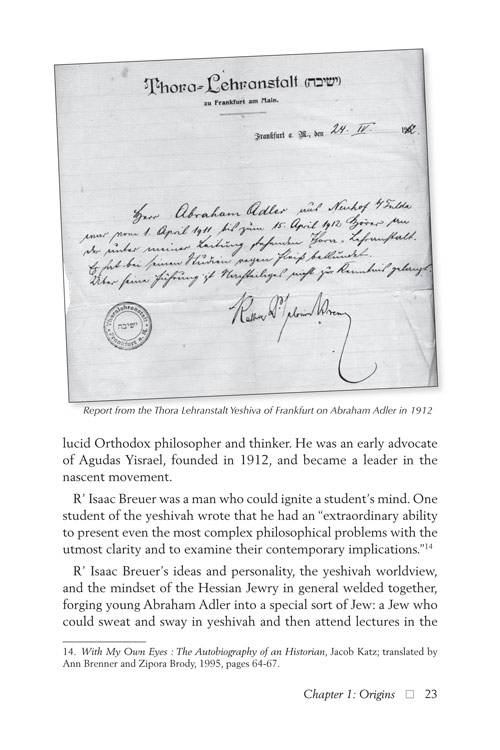 Thora-Lehranstalt (ישיבה)
zu Frankfurt am Main.
Frankfurt a. M., den 24. IV. 1912.
Herr Abraham Adler aus Neuhof b/Fulda
war vom 1. April 1911 bis zum 15. April 1912 Hörer an
der unter meiner Leitung stehenden Thora-Lehranstalt.
Er hat bei seinen Studien regen Fleiß bekundet.
Über seine Führung ist Nachteiliges nicht zur Kenntnis gelangt.
Rabbiner Dr. Salomon Breuer
Thoralehranstalt
ישיבה
Frankfurt a. M.
Report from the Thora Lehranstalt Yeshiva of Frankfurt on Abraham Adler in 1912
lucid Orthodox philosopher and thinker. He was an early advocate
of Agudas Yisrael, founded in 1912, and became a leader in the
nascent movement.
R' Isaac Breuer was a man who could ignite a student's mind. One
student of the yeshivah wrote that he had an "extraordinary ability
to present even the most complex philosophical problems with the
utmost clarity and to examine their contemporary implications."14
R' Isaac Breuer's ideas and personality, the yeshivah worldview,
and the mindset of the Hessian Jewry in general welded together,
forging young Abraham Adler into a special sort of Jew: a Jew who
could sweat and sway in yeshivah and then attend lectures in the
14. With My Own Eyes : The Autobiography of an Historian, Jacob Katz; translated by
Ann Brenner and Zipora Brody, 1995, pages 64-67.
Chapter 1: Origins □ 23